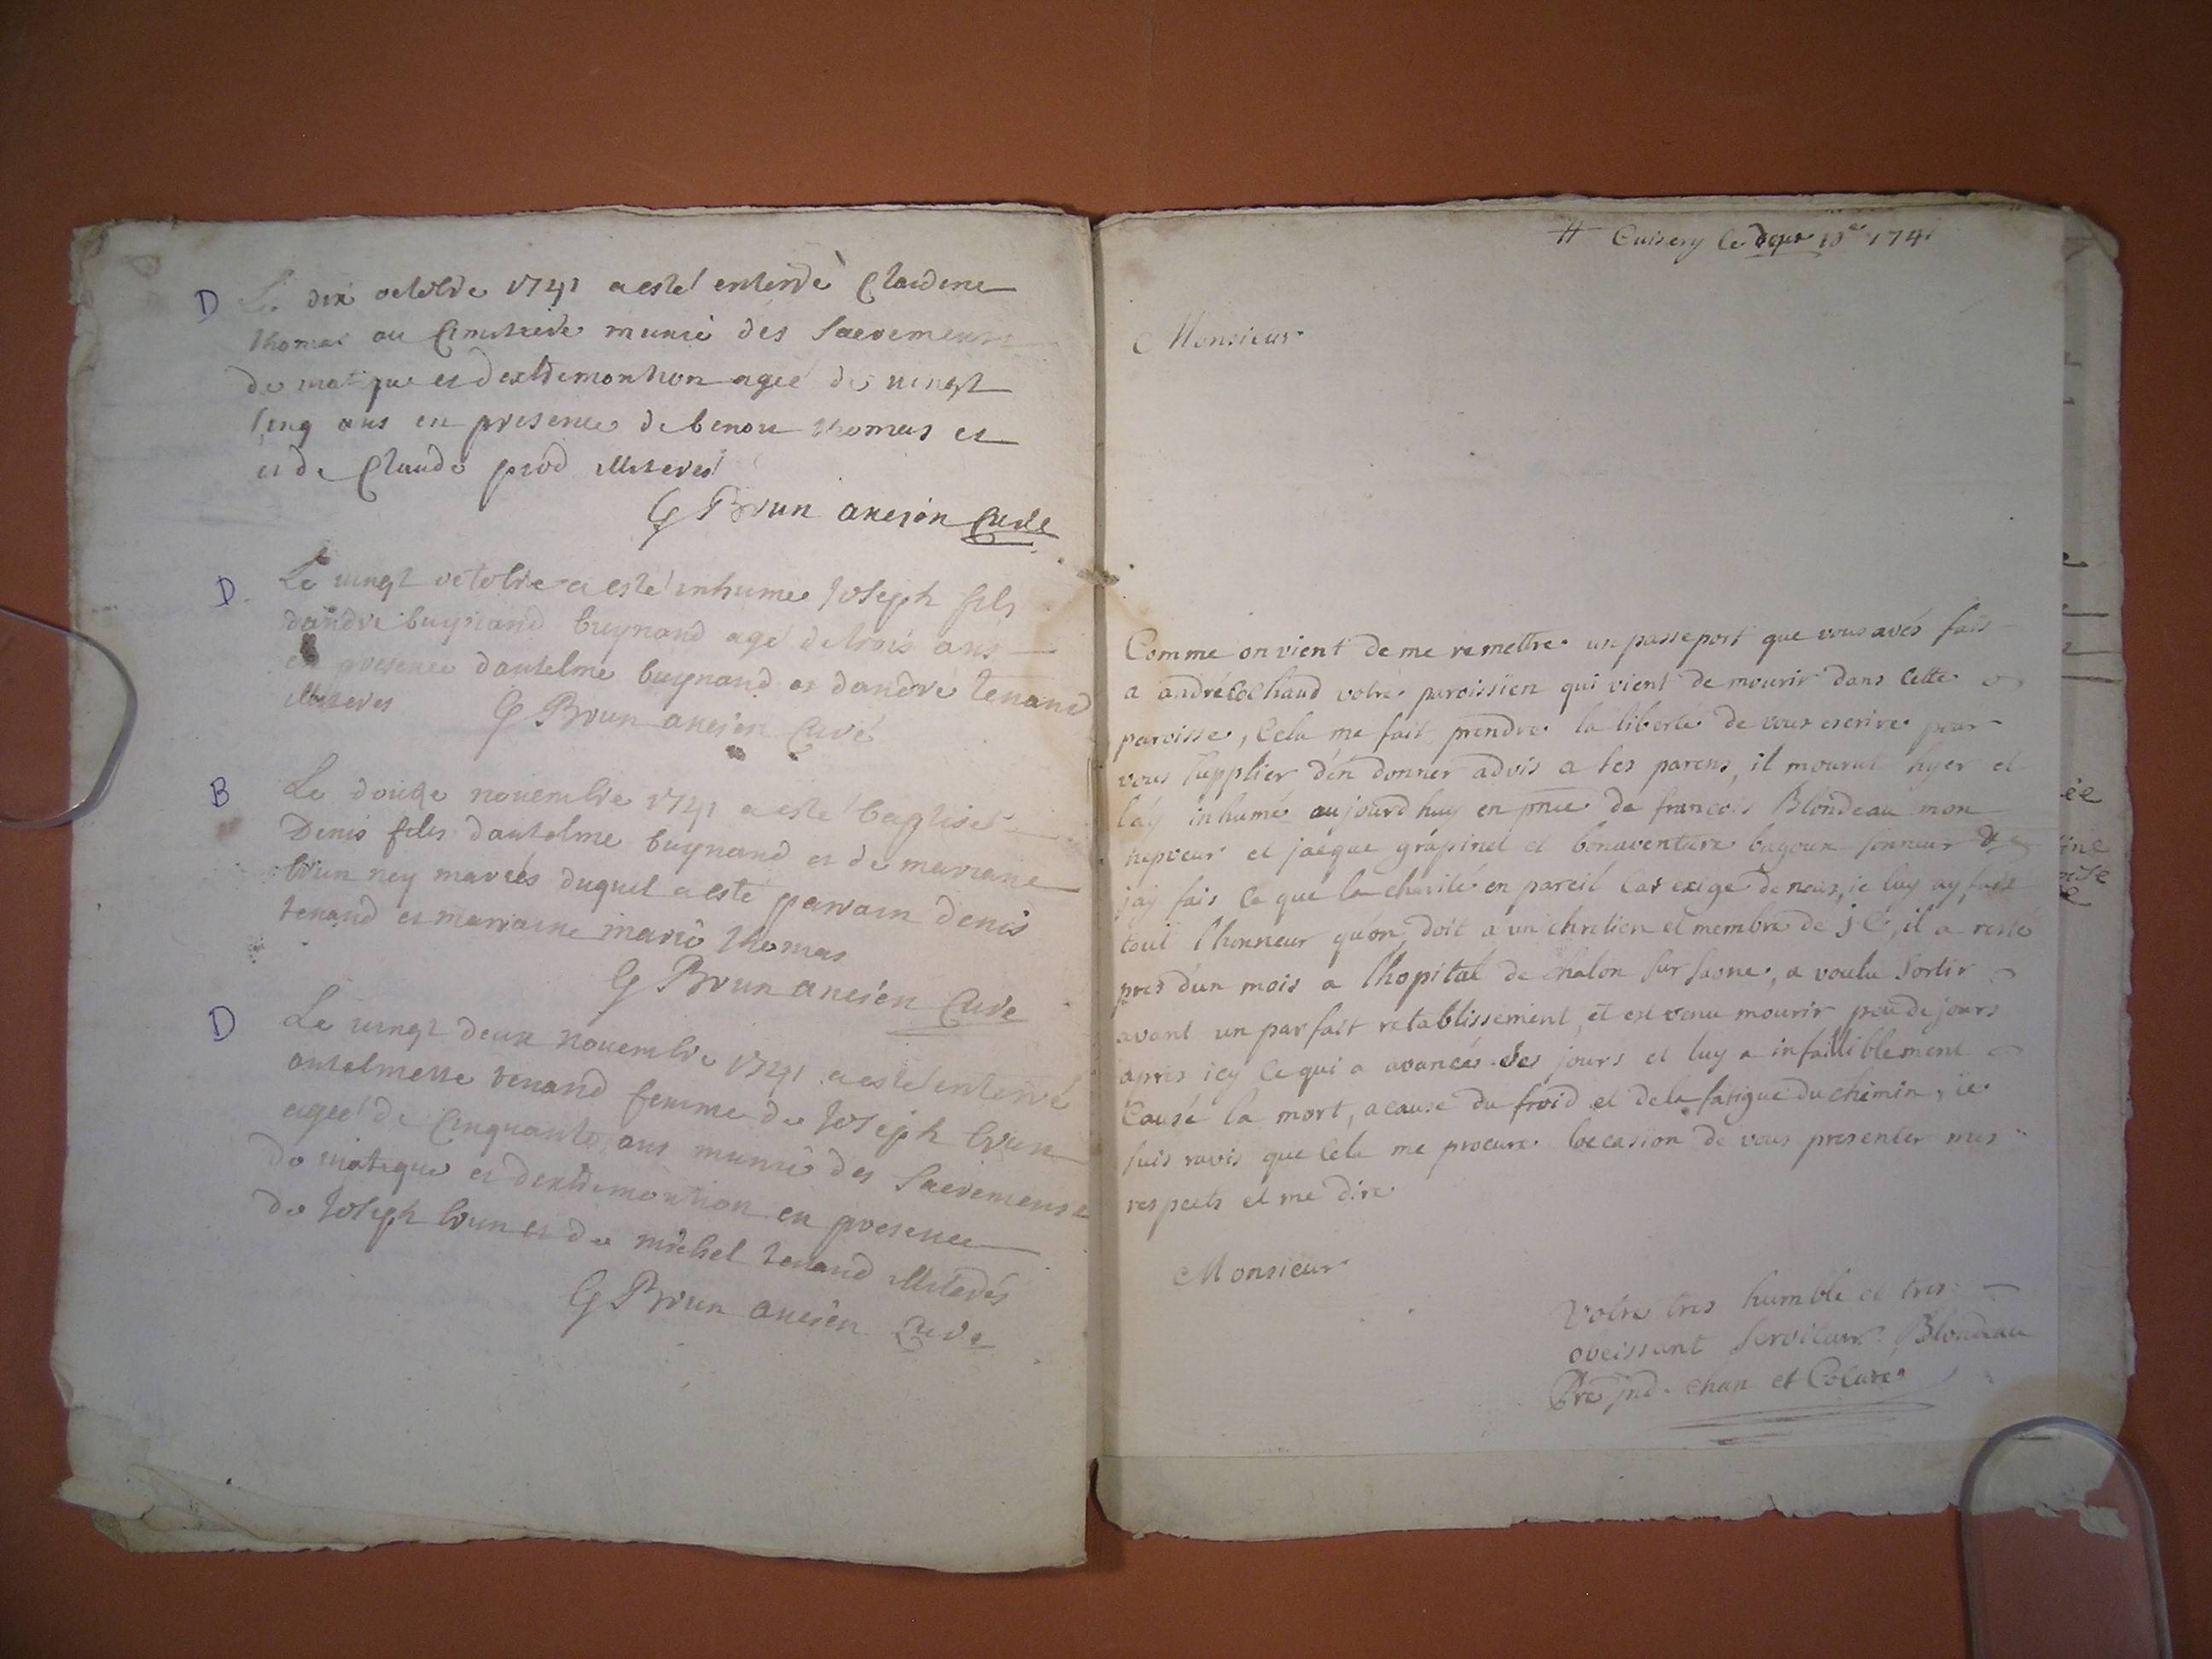 D Le dix octobre 1741 a esté enterré Claudine
thomas au Cimetiere munie des Sacremens
de viatique et dextremontion ageé de vingt
Cinq ans en presence de benoit thomas et
et de Claude illiteres
G Brun ancien Curé
D Le vingt octobre a esté inhume Joseph fils
dandre buynand buynand agé de trois ans
en presence dantelme buynand et dandré tenand
illiteres G Brun ancien Curé
B Le douze novembre 1741 a esté baptisé
Denis fils dantelme buynand et de mariane
brun ney mariés duquel a esté parrain denis
tenand et marraine marie thomas
G Brun ancien Curé
D Le vingt deux novembre 1741 a esté enterré
antelmette tenand femme de Joseph brun
ageé de Cinquante ans munie des Sacremens
de viatique et dextremontion en presence
de Joseph brun et de michel tenand illiterés
G Brun ancien Curé
Cuisery le 10e 1741
Monsieur
Comme on vient de me remettre un passeport que vous avés fait
a andré Cochaud votre paroissien qui vient de mourir dans Cette
paroisse, Cela me fait prendre la liberté de vous escrire pour
vous Supplier d'en donner advis a ses parens, il mourut hyer et
l'áy inhumé aujourd'huy en pnce de francois Blondeau mon
nepveur et jacque grapinet et bonaventure bugoux sonneur
j'ay fais Ce que la charité en pareil Cas exige de nous, je luy ay fait
tout l'honneur qu'on doit a un chretien et membre de J C, il a resté
pres d'un mois a l'hopital de chalon sur saone, a voulu Sortir
avant un parfait retablissement, et est venu mourir peu de jours
apres icy Ce qui a avancés ses jours et luy a infailliblement
Causé la mort, a cause du froid et de la fatigue du chemin, je
suis ravis que Cela me procure l'occasion de vous presenter mes
respects et me dire
Monsieur
Votre tres humble et tres
obeissant Serviteur Blondeau
Pre chan et Cocure